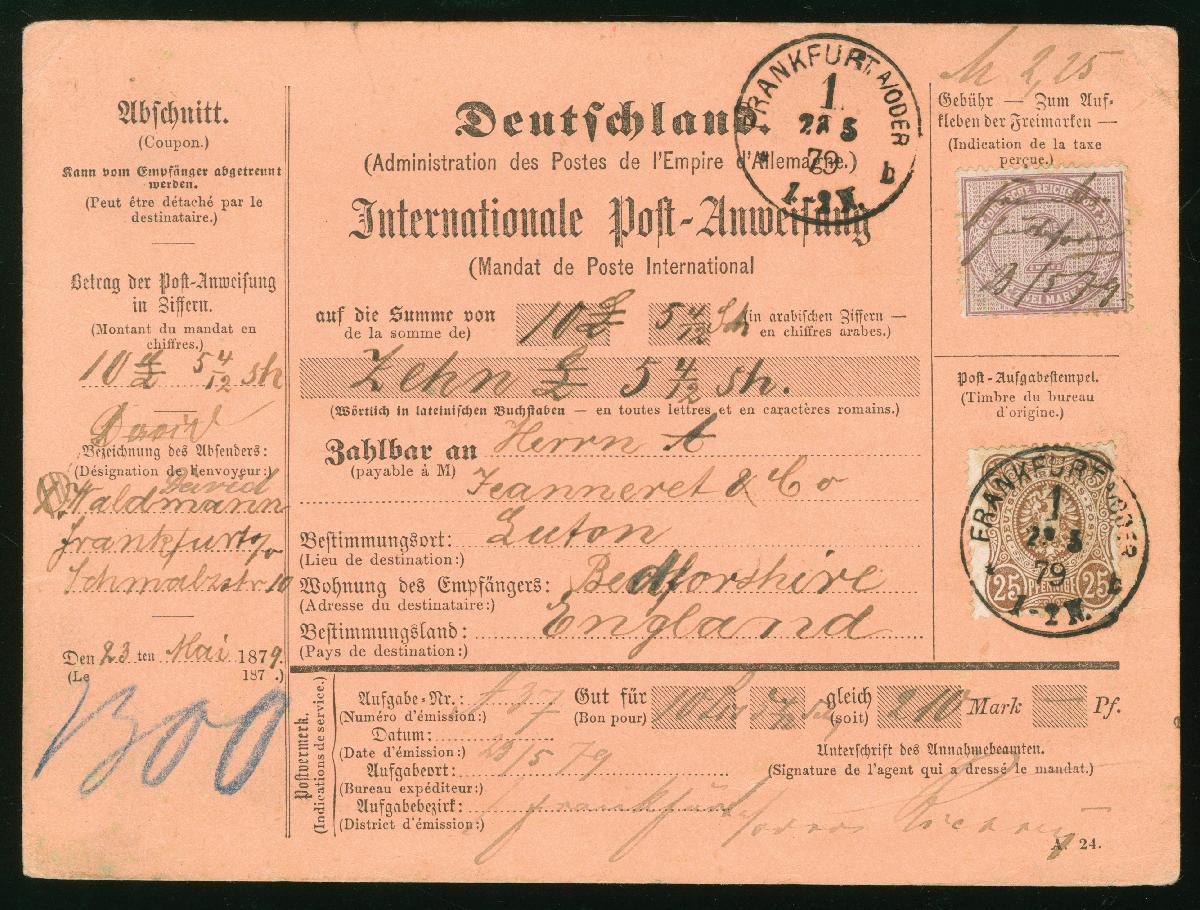 Abschnitt.
(Coupon.)
Kann vom Empfänger abgetrennt
werden.
(Peut être détaché par le
destinataire.)
Betrag der Post-Anweisung
in Ziffern.
(Montant du mandat en
chiffres.)
10 £ 5 4/12 sh
David
Bezeichnung des Absenders:
(Désignation de l'envoyeur:)
David
Waldmann
Frankfurt a/o
Schmalzstr 10
Den 23 ten Mai 1879.
(Le 187 .)
300
Deutschland.
(Administration des Postes de l'Empire d'Allemagne.)
Internationale Post-Anweisung
(Mandat de Poste International
auf die Summe von 10 £ 5 4/12 Sh (in arabischen Ziffern —
de la somme de) en chiffres arabes.)
Zehn £ 5 4/12 sh.
(Wörtlich in lateinischen Buchstaben — en toutes lettres et en caractères romains.)
Zahlbar an Herrn A
(payable à M) Jeanneret & Co
Bestimmungsort: Luton
(Lieu de destination:)
Wohnung des Empfängers: Bedforshire
(Adresse du destinataire:)
Bestimmungsland: England
(Pays de destination:)
FRANKFURT A/ODER
1
23 5
79
1-2 N.
b
M 2,25
Gebühr — Zum Auf-
kleben der Freimarken —
(Indication de la taxe
perçue.)
DEUTSCHE REICHS-POST
ZWEI MARK
23/5 79
Post-Aufgabestempel.
(Timbre du bureau
d'origine.)
FRANKFURT A/ODER
1
23 5
79
1-2 N.
b
25 PFENNIGE 25
Postvermerk.
(Indications de service.)
Aufgabe-Nr.: 137 Gut für 10 5 4/12 gleich 210 Mark — Pf.
(Numéro d'émission:) (Bon pour) (soit)
Datum:
(Date d'émission:) 23/5 79
Unterschrift des Annahmebeamten.
(Signature de l'agent qui a dressé le mandat.)
Aufgabeort:
(Bureau expéditeur:)
Aufgabebezirk: Frankfurt
(District d'émission:)
A. 24.